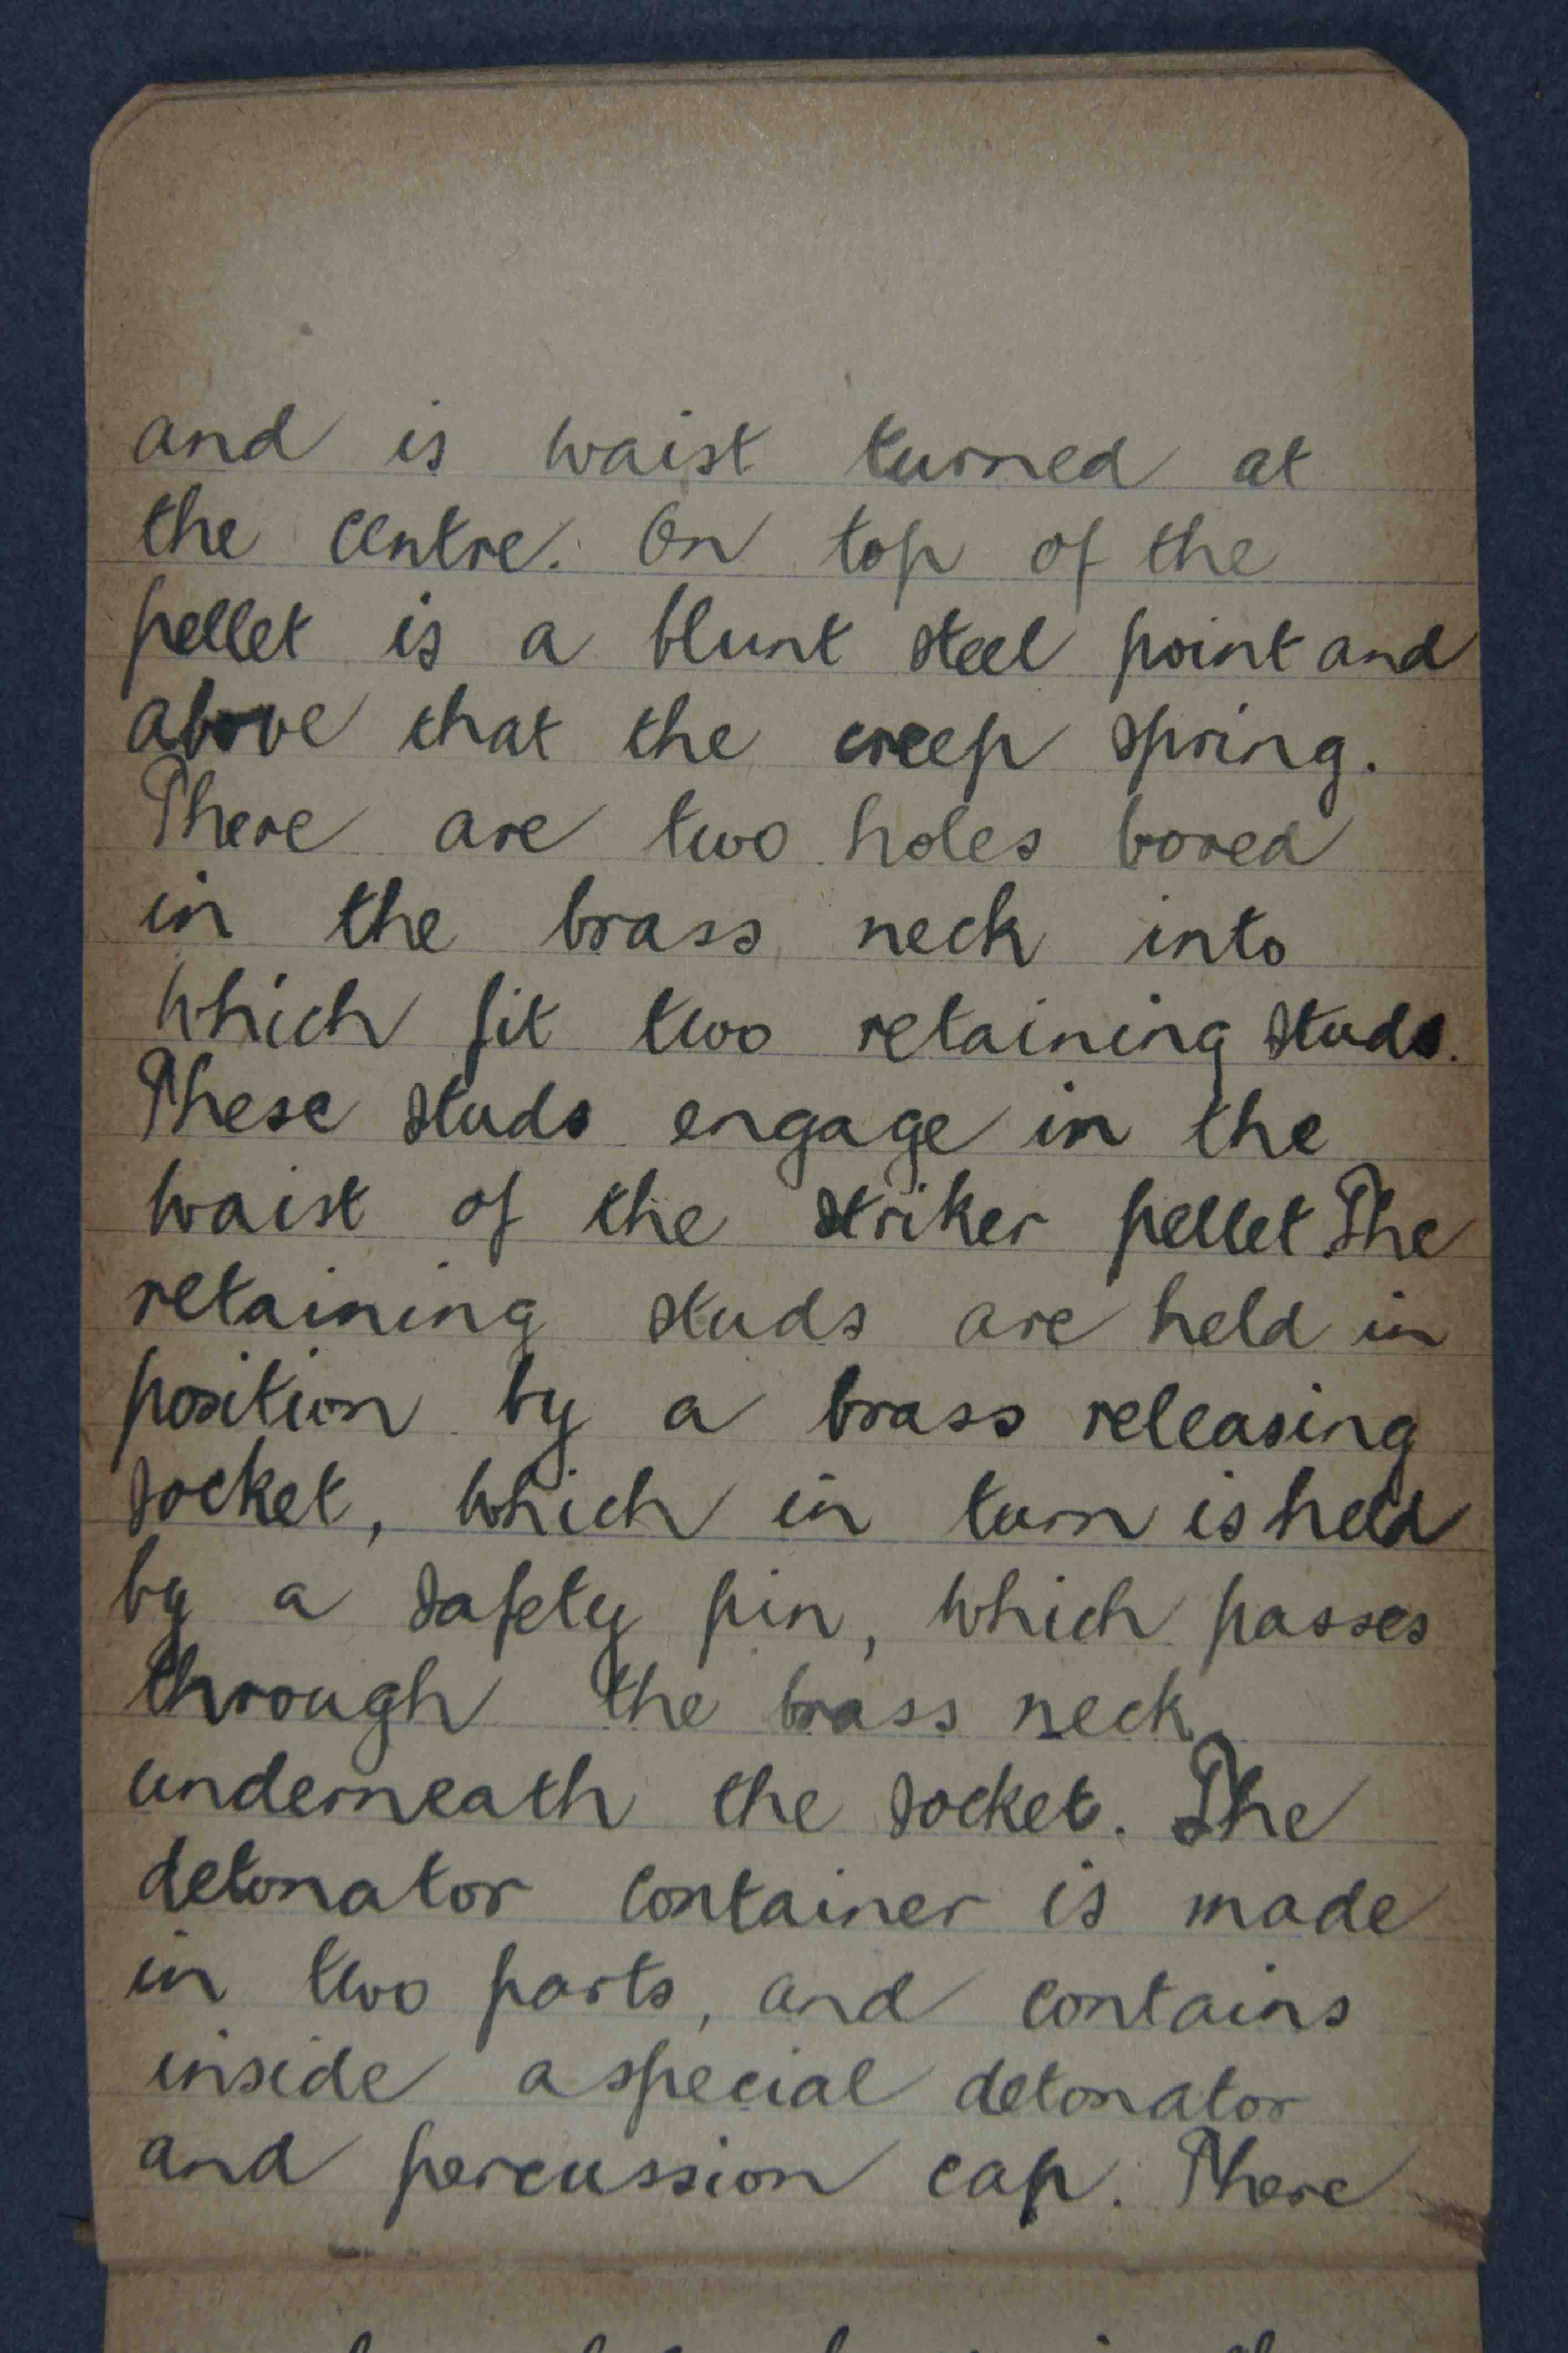 and is waist turned at
the centre. On top of the
pellet is a blunt steel point and
above that the creep spring.
There are two holes bored
in the brass neck into
which fit two retaining studs.
These studs engage in the
waist of the striker pellet. The
retaining studs are held in
position by a brass releasing
socket, which in turn is held
by a safety pin, which passes
through the brass neck
underneath the socket. The
detonator container is made
in two parts, and contains
inside a special detonator
and percussion cap. There